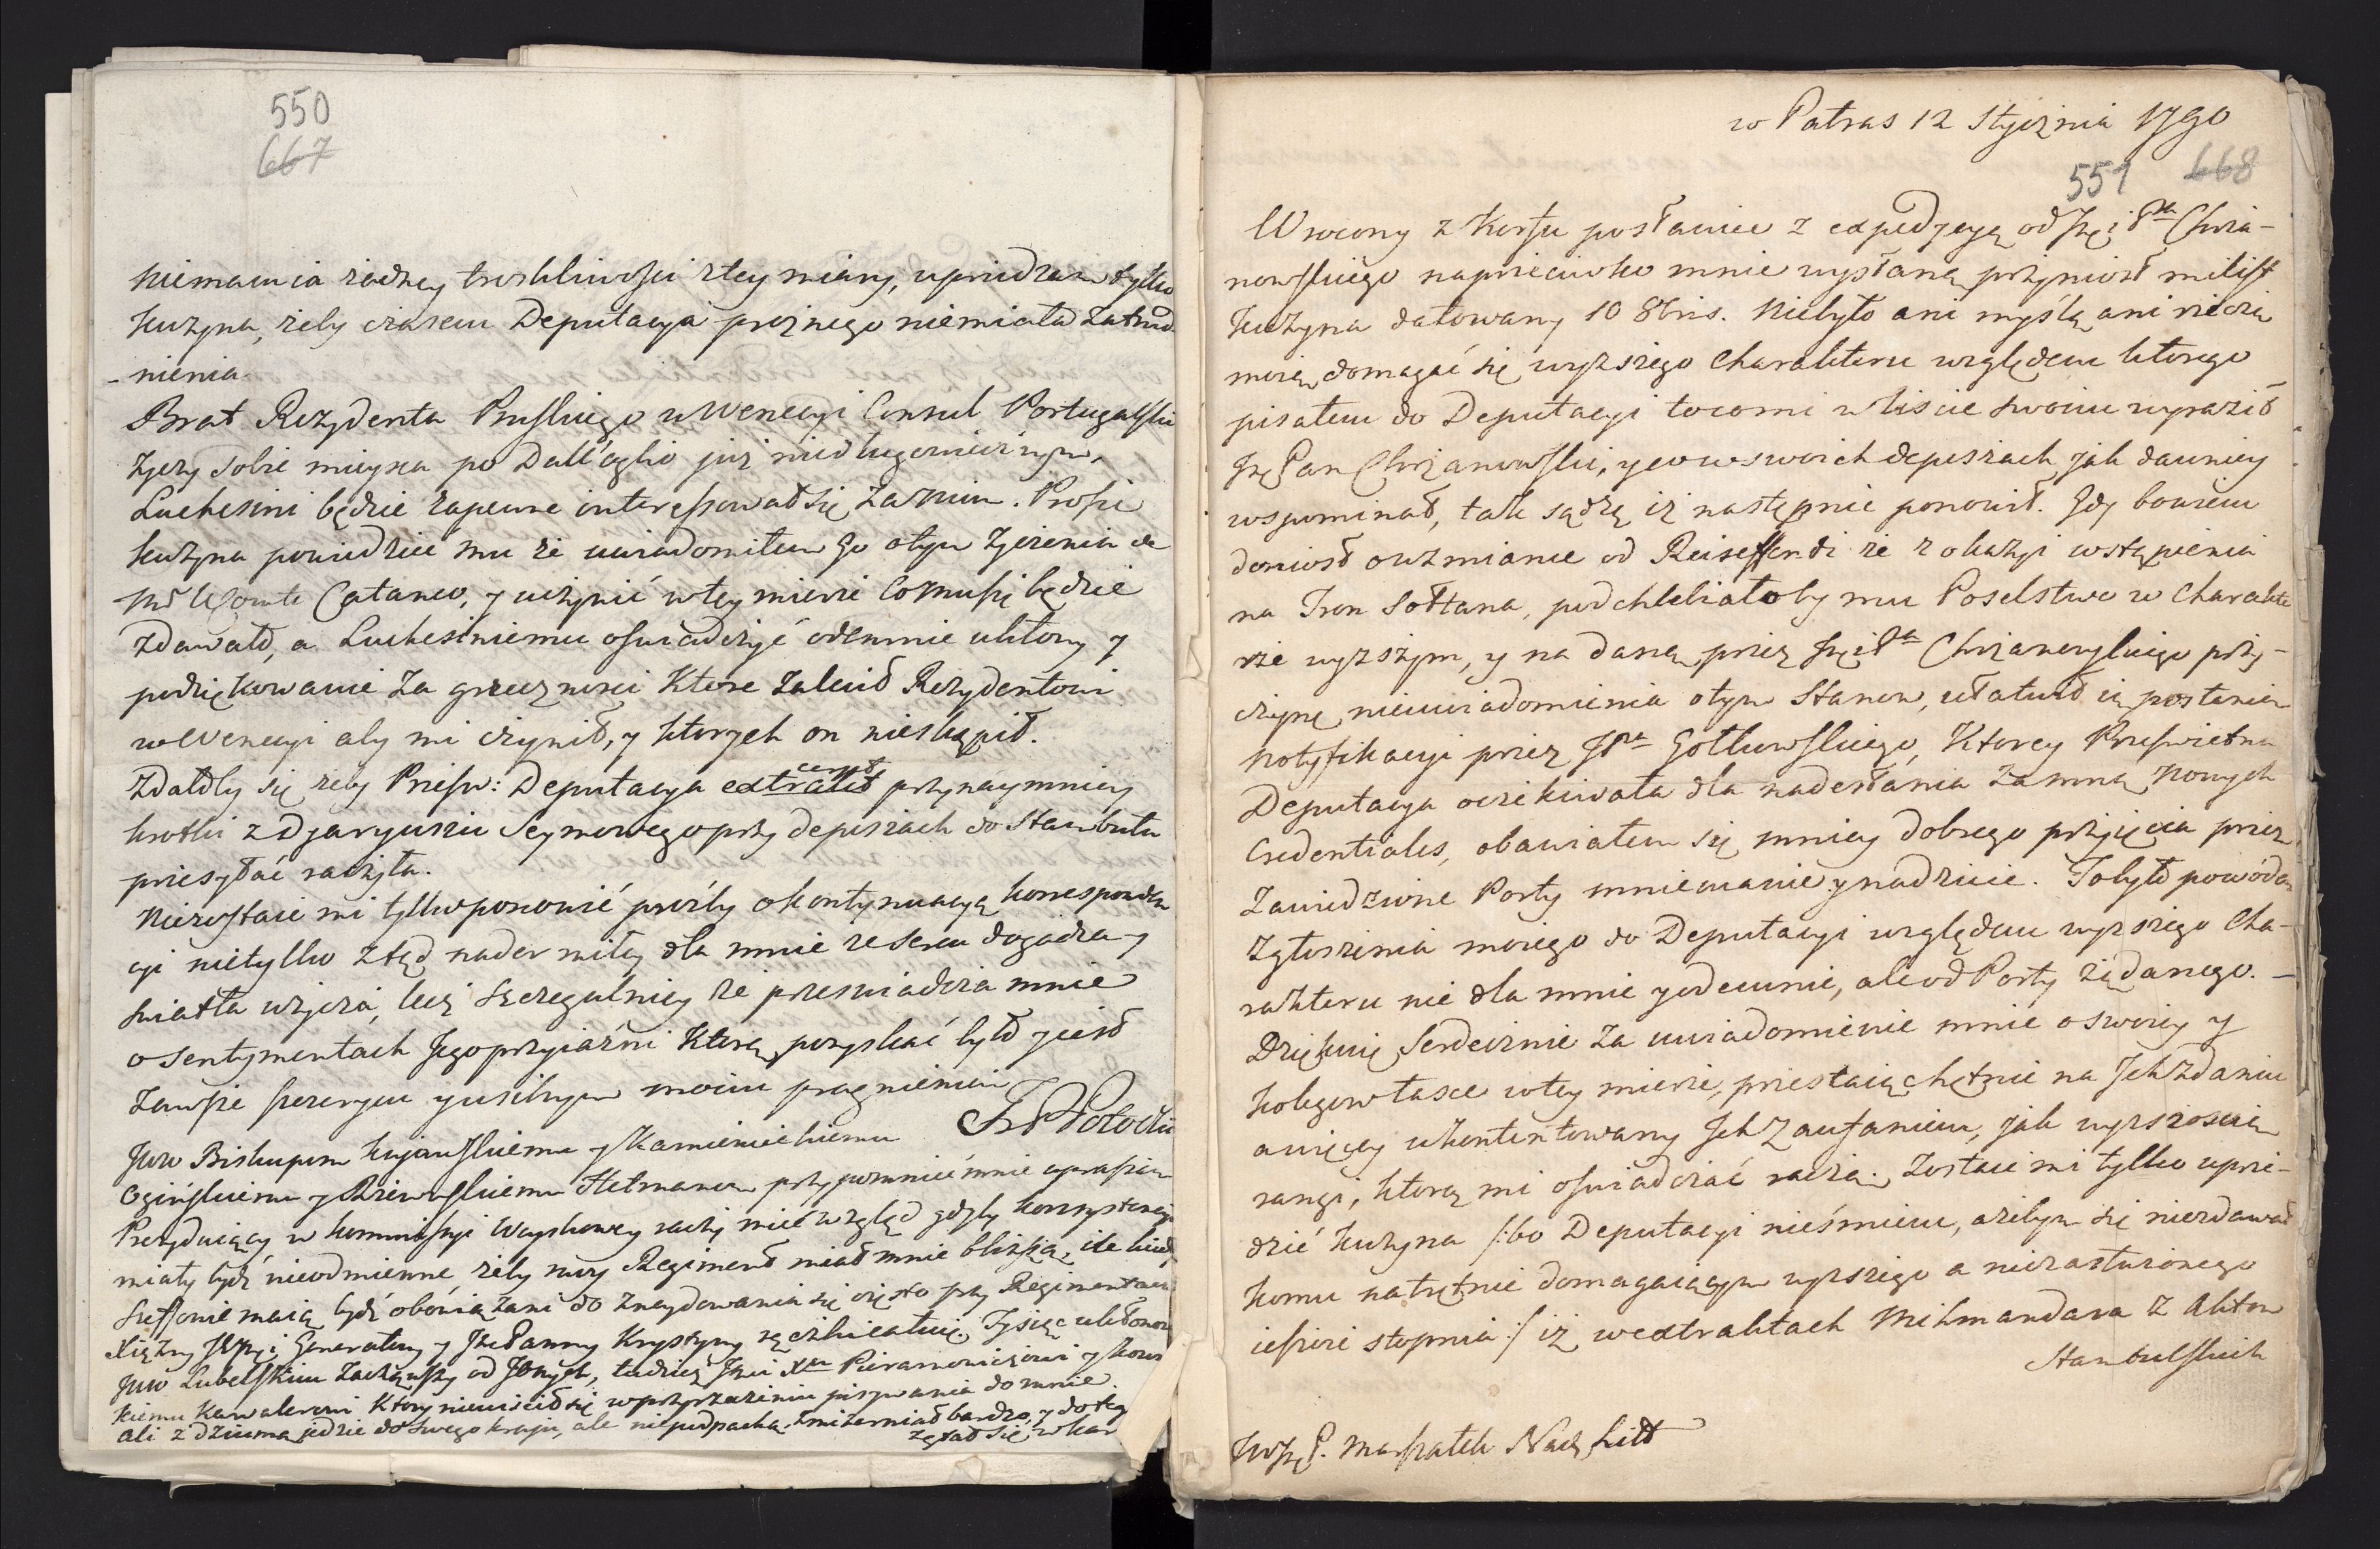 550
667
Niemam ia żadney troskliwości z tey miary, uprzedzam tylko
Kuzyna, żeby czasem Deputacya prożnego niemiała zatrud
-nienia
Brat Rezydenta Pruskiego w Wenecyi Consul Portugalski
życzy sobie mieysca po Dall'oglio już niedługowiecznym,
Luchesini będzie zapewne interessował się za nim. Proszę
Kuzyna powiedzieć mu że uwiadomiłem Go o tym życzeniu
Conte Cataneo, y uczynić w tey mierze co mu się będzie
zdawało, a Luchesiniemu oswiadczyć odemnie ukłony y
podziękowanie za grzecznosci ktore zalecił Rezydentowi
w Wenecyi aby mi czynił, y ktorych on nieskąpił.
Zdałoby się żeby Przesw: Deputacya extrakt przynaymniey
krotki z Dyaryuszu Seymowego przy depeszach do Stambułu
przesyłać raczyła.
Niezostaie mi tylko ponowić proźby o kontynuacyą korresponden
cyi nietylko ztąd nader miłey dla mnie że sercu dogadza y
swiatła użycza, lecz szczegulniey że przeswiadcza mnie
o sentymentach Jego przyiaźni ktorą pozyskać było y iest
zawsze szczerym y usilnym moim pragnieniem
FP Potocki
JWW Biskupom Kujawskiemu y Kamienieckiemu
Ogińskiemu y Rzewuskiemu Hetmanom przypomnieć mnie upraszam
Prezyduiący w Kommissyi Woyskowey raczy mieć wzgląd gdyby konsystencye
miały bydź nieodmienne, żeby moy Regiment miał mnie bliższą, ile kiedy
Szeffowie maią bydź obowiązani do znaydowania się często przy Regimentach
Xiężny JMści Generałowy y JchPanny Krystyny rączki całuię. Tysiąc ukłonow
JWW Lubelskim zacząwszy od Jmych, tudzież JMci Xdu Piramowiczowi y Kows
kiemu Kawalerowi ktory nieuiścił się w przyrzeczeniu pisywania do mnie.
Ali z dziuma jedzie do swego kraju, ale nie pudpacha zmizerniał bardzo, y do te
zgrał się w kar
w Patras 12 Stycznia 1790
551 668
Wrocony z Korfu posłaniec z expedycyą od Jgci Pna Chrza-
nowskiego naprzeciwko mnie wysłaną przyniosł mi list
Kuzyna datowany 10 8bris. Niebyło ani myślą ani rzeczą
moią domagać się wyzszego charakteru względem ktorego
pisałem do Deputacyi to co mi w liscie swoim wyraził
JP Pan Chrzanowski, y co w swoich depeszach jak dawniey
wspominał, tak sądzę iż następnie ponowił. Gdy bowiem
doniosł o wzmiance od Reiseffendi że z okazyi wstąpienia
na Tron Sołtana, podchlebiałoby mu Poselstwo w charakte
rze wyzszym, y na daną przez JgciPa Chrzanowskiego przy-
czynę nieuwiadomienia o tym Stanow, ułatwił ią posłaniem
notyfikacyi przez JPna Gotkowskiego, ktorey Przeswietna
Deputacya oczekiwała dla nadesłania za mną nowych
Credentiales, obawiałem się mniey dobrego przyięcia przez
zawiedzione Porty mniemanie y nadzieie. To było powodem
zgłoszenia moiego do Deputacyi względem wyzszego Cha-
rakteru nie dla mnie y odemnie, ale od Porty żądanego. —
Dziękuię serdecznie za uwiadomienie mnie o swoiey y
Kolegow łasce w tey mierze, przestaię chętnie na Jch zdaniu
a więcey ukontentowany Jch zaufaniem, jak wyzszoscią
rangi, ktorą mi oswiadczać raczą. Zostaie mi tylko uprze-
dzić Kuzyna /:bo Deputacyi nieśmiem, ażebym się niezdawał
komu natrętnie domagaiącym wyzszego a niezasłużonego
ieszcze stopnia:/ iż w extraktach Mihmandara z Aktow
Stambulskich
JWJP. Marszałek Nad. Litt